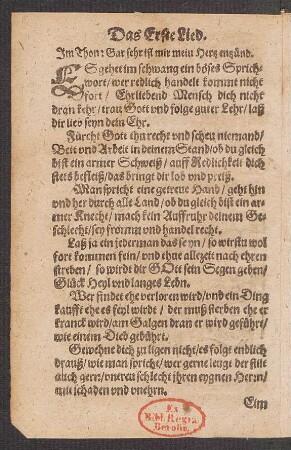 Das Erste Lied.
Im Thon: Gar sehr ist mit mein Hertz entzünd.
ES gehet im schwang ein böses Sprich-
wort/ wer redlich handelt kommt nicht
fort/ Ehrliebend Mensch dich nicht
dran kehr/ trau Gott und folge guter Lehr/ laß
dir lieb seyn dein Ehr.
Fürcht Gott thu recht und scheu niemand/
Bett und Arbeit in deinem Stand/ ob du gleich
bist ein armer Schweiß/ auff Redlichkeit dich
stets befleiß/ das bringt dir lob und preiß.
Man spricht eine getreue Hand/ geht hin
und her durch alle Land/ ob du gleich bist ein ar-
mer Knecht/ mach kein Auffruhr deinem Ge-
schlecht/ sey fromm und handel recht.
Laß ja ein jederman das seyn/ so wirstu wol
fort kommen fein/ und thue allezeit nach ehren
streben/ so wird dir GOtt sein Segen geben/
Glück Heyl und langes Lebn.
Wer findet ehe verloren wird/ und ein Ding
kaufft ehe es feyl wirdt/ der muß sterben ehe er
kranck wird/ am Galgen dran er wird geführt/
wie einem Dieb gebührt.
Gewehne dich zu ligen nicht/ es folgt endlich
drauß/ wie man spricht/ wer gerne leugt der stilt
auch gern/ untreu schlecht ihren eygnen Herrn/
mit schaden und unehrn.
Ein
Ex
Bibl. Regia
Berolin.